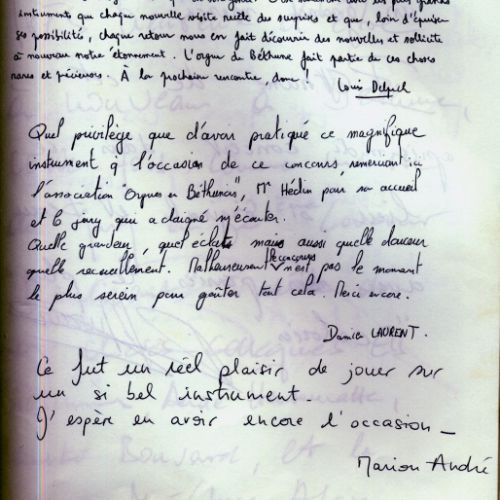 instruments que chaque nouvelle visite révèle des surprises et que, loin d'épuiser
ses possibilités, chaque retour nous en fait découvrir des nouvelles et sollicite
à nouveau notre étonnement. L'orgue de Béthune fait partie de ces choses
rares et précieuses. À la prochaine rencontre, donc !
Louis Delpech
Quel privilège que d'avoir pratiqué ce magnifique
instrument à l'occasion de ce concours, remerciant ici
l'association "Orgues en Béthunois", Mr Hédin pour son accueil
et le jury qui a daigné m'écouter.
Quelle grandeur, quel éclat mais aussi quelle douceur
quelle recueillement. Malheureusement le concours n'est pas le moment
le plus serein pour goûter tout cela. Merci encore.
Damien LAURENT.
Ce fut un réel plaisir de jouer sur
un si bel instrument.
J'espère en avoir encore l'occasion_
Marion André